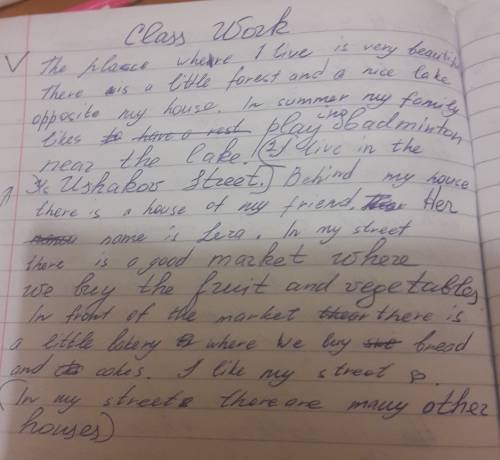 Class Work
The place where I live is very beautiful
There is a little forest and a nice lake
opposite my house. In summer my family
likes to have a rest playing badminton
near the lake. (2 I live in the
Ushakov Street.) Behind my house
there is a house of my friend. Her
name is Leza. In my street
there is a good market where
we buy the fruit and vegetables.
In front of the market there is
a little bakery where we buy bread
and cakes. I like my street
(In my street there are many other
houses)